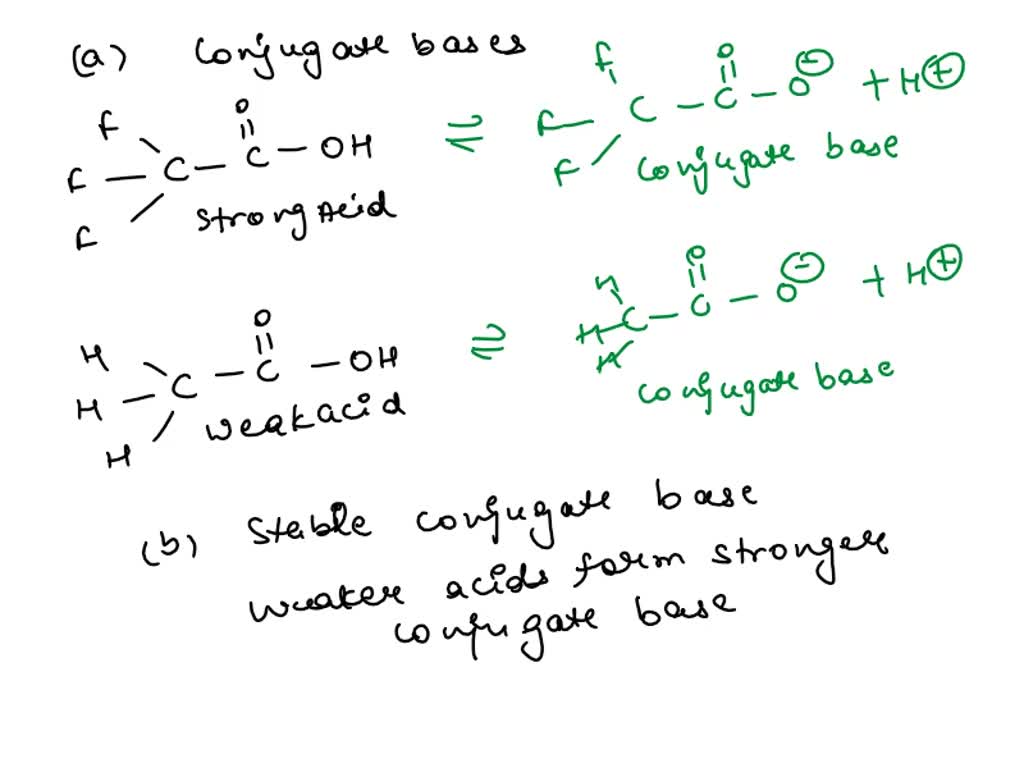 (a) Conjugate bases
F
F — C — C — OH
O
F
Strong Acid
⇌
F
F — C — C — O⊖ + H⊕
O
F
Conjugate base
H
H — C — C — OH
O
H
Weak acid
⇌
H
H — C — C — O⊖ + H⊕
O
H
Conjugate base
(b) Stable conjugate base
Weaker acids form stronger
conjugate base